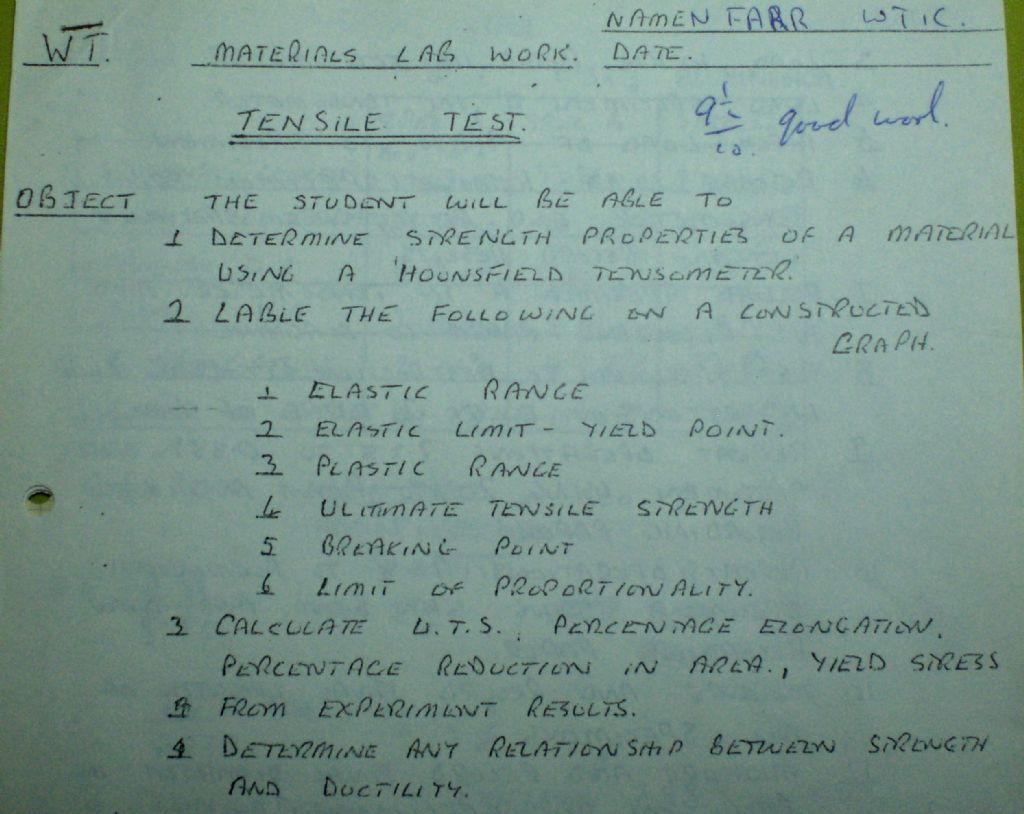 NAME N FARR WTIC.
WT. MATERIALS LAB WORK. DATE.
TENSILE TEST.
9½/10 good work.
OBJECT THE STUDENT WILL BE ABLE TO
1 DETERMINE STRENGTH PROPERTIES OF A MATERIAL
USING A 'HOUNSFIELD TENSOMETER.'
2 LABLE THE FOLLOWING ON A CONSTRUCTED
GRAPH.
1 ELASTIC RANGE
2 ELASTIC LIMIT - YIELD POINT.
3 PLASTIC RANGE
4 ULITIMATE TENSILE STRENGTH
5 BREAKING POINT
6 LIMIT OF PROPORTIONALITY.
3 CALCULATE U.T.S., PERCENTAGE ELONGATION,
PERCENTAGE REDUCTION IN AREA., YIELD STRESS
FROM EXPERIMENT RESULTS.
4 DETERMINE ANY RELATIONSHIP BETWEEN STRENGTH
AND DUCTILITY.